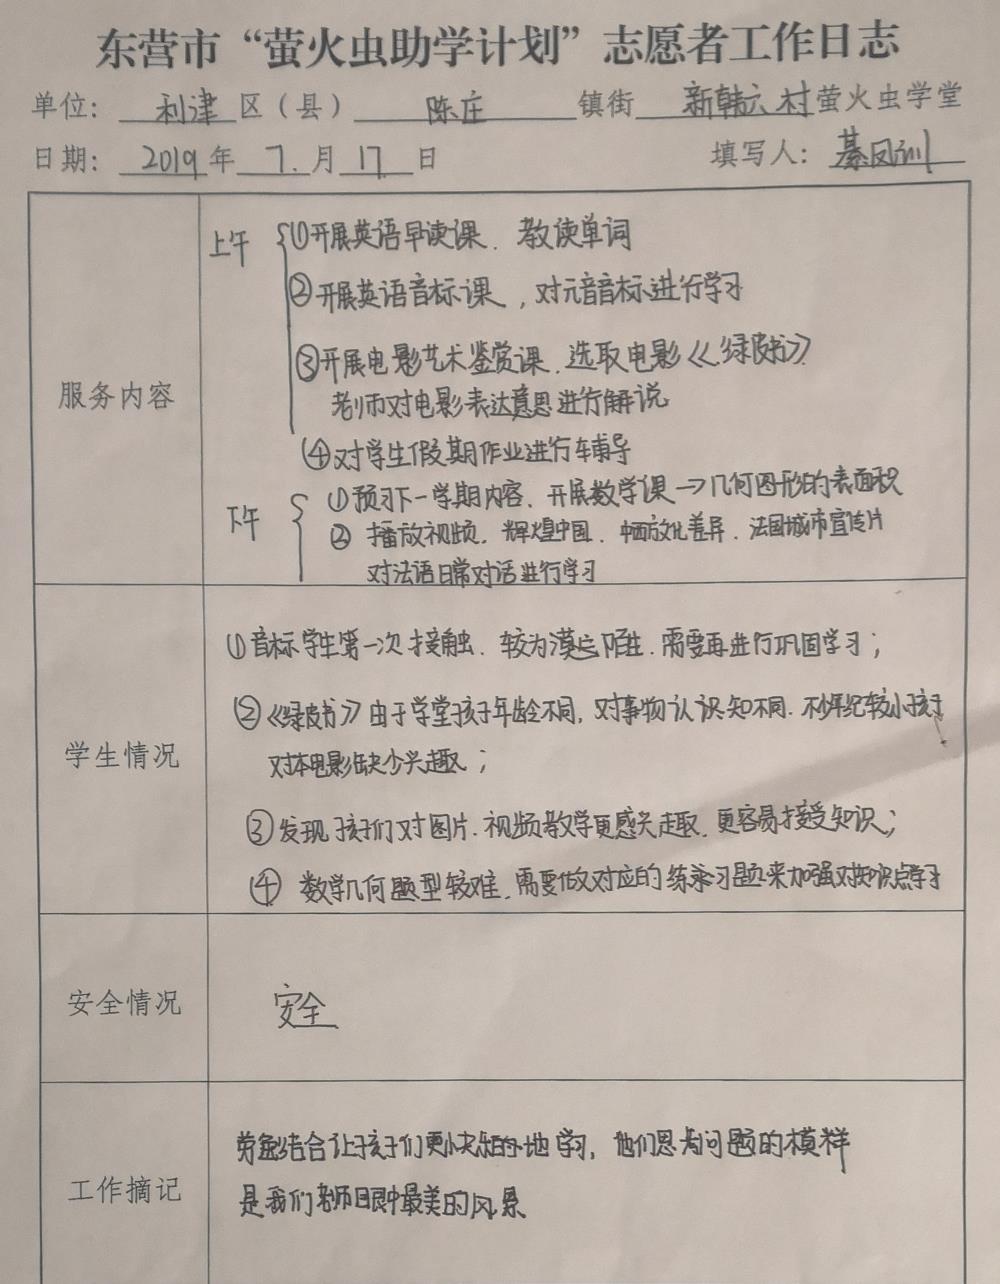 东营市“萤火虫助学计划”志愿者工作日志
单位：利津区（县）陈庄镇街新韩六村萤火虫学堂
日期：2019年7.月17日 填写人：綦凤训
服务内容
上午 ①开展英语早读课．教读单词
②开展英语音标课，对元音音标进行学习
③开展电影艺术鉴赏课．选取电影《绿皮书》
老师对电影表达意思进行解说
④对学生假期作业进行辅导
下午 ①预习下一学期内容．开展数学课→几何图形的表面积
② 播放视频．辉煌中国．中西文化差异．法国城市宣传片
对法语日常对话进行学习
学生情况
①音标学生第一次接触．较为陌生．需要再进行巩固学习；
②《绿皮书》由于学堂孩子年龄不同，对事物认识知不同．不少年纪较小孩子
对本电影缺少兴趣；
③发现孩子们对图片．视频教学更感兴趣．更容易接受知识；
④ 数学几何题型较难．需要做对应的练习题来加强对知识点学习
安全情况
安全
工作摘记
劳逸结合让孩子们更快乐的地学习，他们思考问题的模样
是我们老师眼中最美的风景